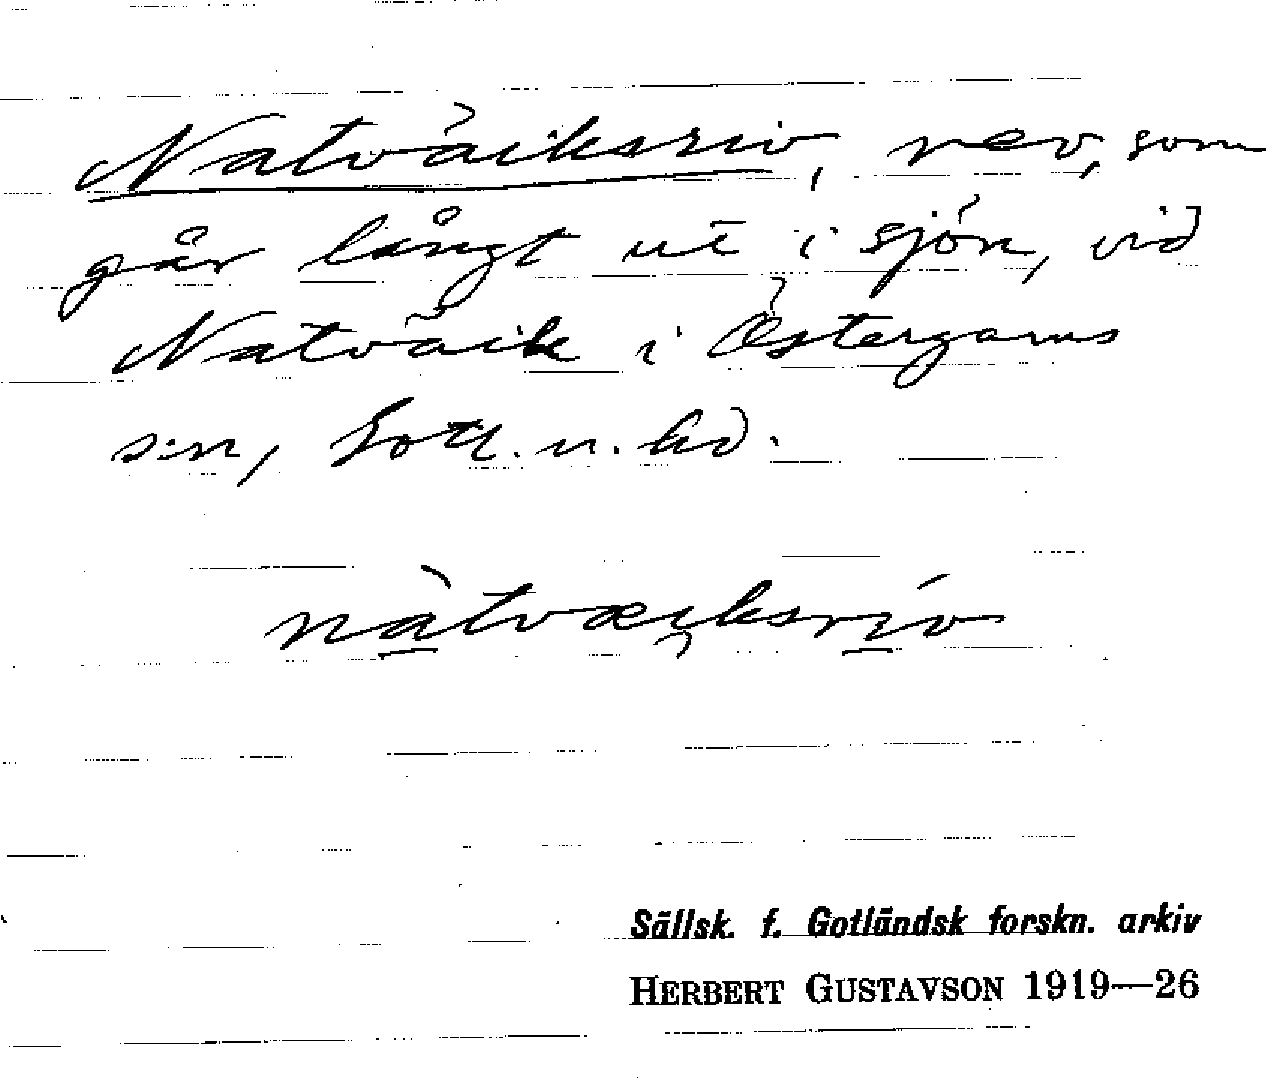 Natväiksriv, rev, som
går långt ut i sjön, vid
Natväik i Östergarns
s:n, Gotl. n. hd.
nàtvæi̯ksrív
Sällsk. f. Gotländsk forskn. arkiv
HERBERT GUSTAVSON 1919—26